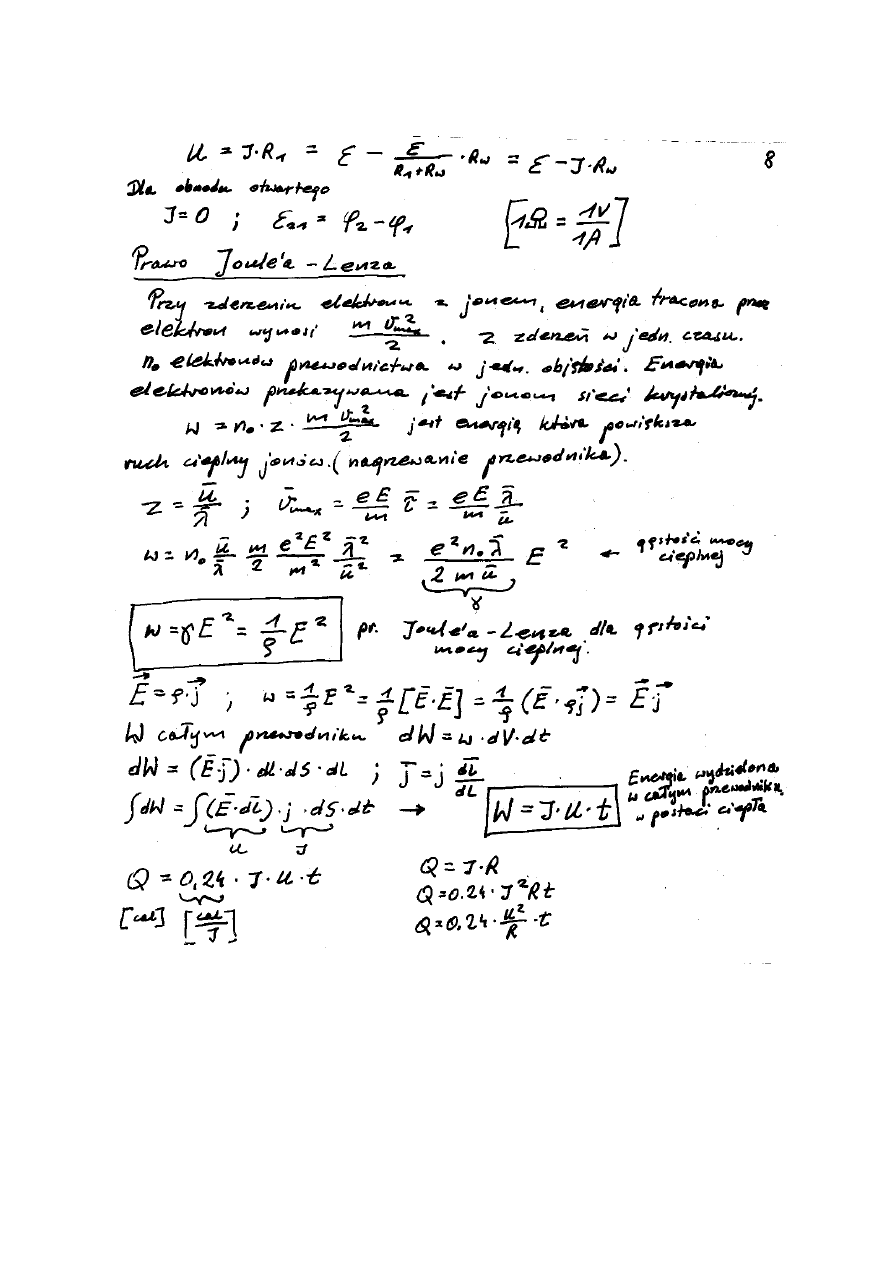 U = J·R₁ = ℰ − ℰ/(R₁+Rw) · Rw = ℰ − J·Rw 8
Dla obwodu otwartego
J=0 ; ℰ₂₁ = φ₂−φ₁ [1Ω = 1V/1A]
Prawo Joule'a – Lenza
Przy zderzeniu elektronu z jonem, energia tracona przez
elektron wynosi m v̄²max/2 . z zderzeń w jedn. czasu.
n₀ elektronów przewodnictwa w jedn. objętości. Energia
elektronów przekazywana jest jonom sieci krystalicznej.
w = n₀ · z · m v̄²max/2 jest energią która powiększa
ruch cieplny jonów. (nagrzewanie przewodnika).
z = ū/λ̄ ; v̄max = eE/m τ̄ = eE/m λ̄/ū
w = n₀ ū/λ̄ m/2 e²E²/m² λ̄²/ū² = e²n₀λ̄/(2mū) E² ← gęstość mocy cieplnej
γ
w = γE² = 1/ρ E² pr. Joule'a – Lenza dla gęstości
mocy cieplnej.
E⃗ = ρ·j⃗ ; w = 1/ρ E² = 1/ρ [Ē·Ē] = 1/ρ (Ē·ρj⃗) = E⃗·j⃗
W całym przewodniku dW = w·dV·dt
dW = (Ē·j̄)·dt·dS·dL ; j̄ = j dL̄/dL
∫dW = ∫(Ē·dL̄)·j·dS·dt → W = J·U·t Energia wydzielona w całym przewodniku, w postaci ciepła
U J
Q = 0,24 · J·U·t Q = J·R
[cal] [cal/J] Q = 0.24 · J²Rt
Q = 0.24 · U²/R · t